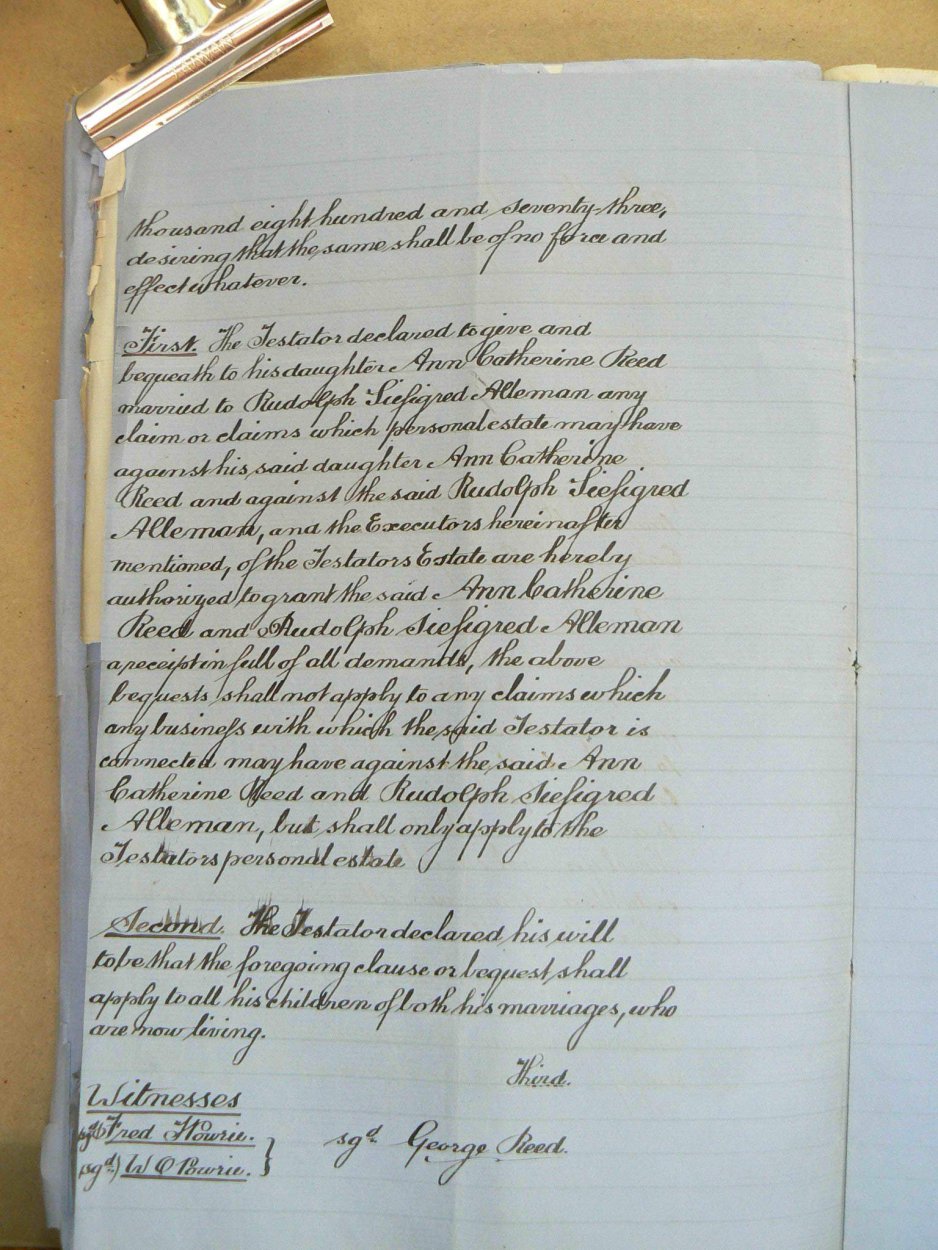 thousand eight hundred and seventy-three,
desiring that the same shall be of no force and
effect whatever.
First. The Testator declared to give and
bequeath to his daughter Ann Catherine Reed
married to Rudolph Siefigred Alleman any
claim or claims which personal estate may have
against his said daughter Ann Catherine
Reed and against the said Rudolph Siefigred
Alleman, and the Executors hereinafter
mentioned, of the Testators Estate are hereby
authorized to grant the said Ann Catherine
Reed and Rudolph Siefigred Alleman
a receipt in full of all demands, the above
bequests shall not apply to any claims which
any business with which the said Testator is
connected may have against the said Ann
Catherine Reed and Rudolph Siefigred
Alleman, but shall only apply to the
Testators personal estate
Second. The Testator declared his will
to be that the foregoing clause or bequest shall
apply to all his children of both his marriages, who
are now living.
Third.
Witnesses
sgd) Fred Howrie.
sgd) W O Powrie. } sgd. George Reed.